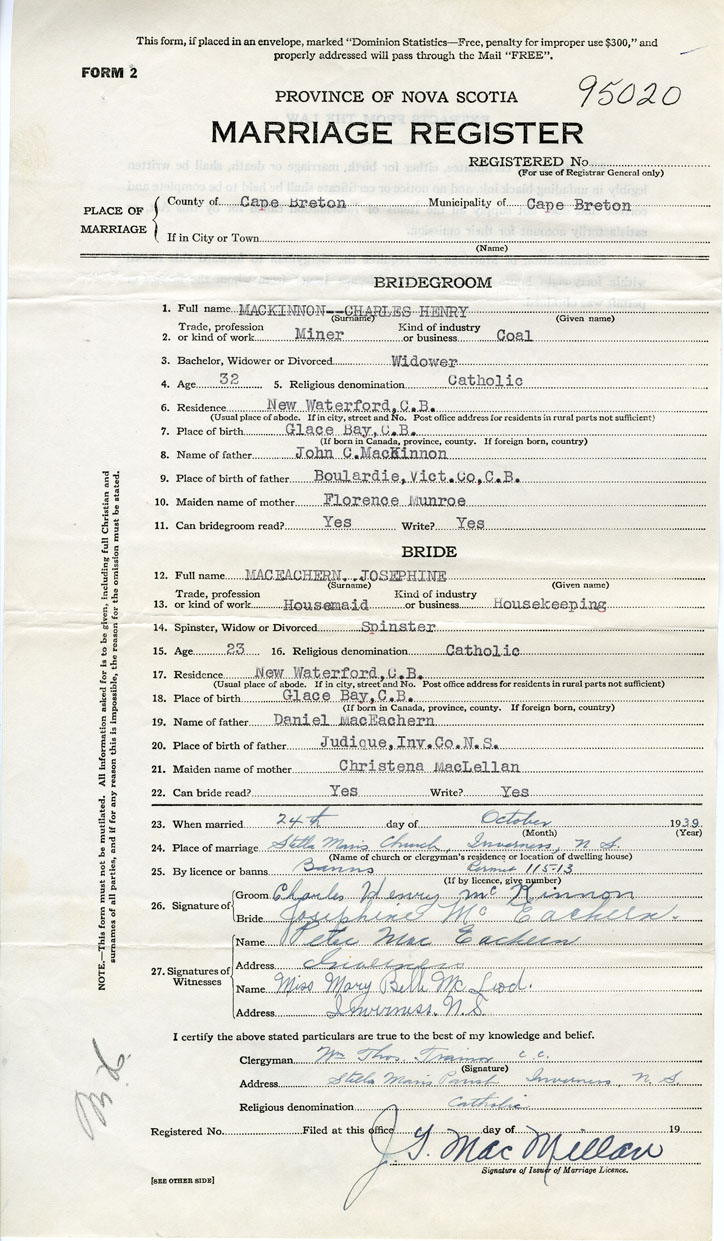 This form, if placed in an envelope, marked “Dominion Statistics—Free, penalty for improper use $300,” and
properly addressed will pass through the Mail “FREE”.
FORM 2
95020
PROVINCE OF NOVA SCOTIA
MARRIAGE REGISTER
REGISTERED No.
(For use of Registrar General only)
PLACE OF MARRIAGE
County of Cape Breton Municipality of Cape Breton
If in City or Town
(Name)
BRIDEGROOM
1. Full name MACKINNON--CHARLES HENRY
(Surname) (Given name)
2. Trade, profession or kind of work Miner Kind of industry or business Coal
3. Bachelor, Widower or Divorced Widower
4. Age 32 5. Religious denomination Catholic
6. Residence New Waterford,C.B.
(Usual place of abode. If in city, street and No. Post office address for residents in rural parts not sufficient)
7. Place of birth Glace Bay,C.B.
(If born in Canada, province, county. If foreign born, country)
8. Name of father John C.MacKinnon
9. Place of birth of father Boulardie,Vict.Co,C.B.
10. Maiden name of mother Florence Munroe
11. Can bridegroom read? Yes Write? Yes
BRIDE
12. Full name MACEACHERN..JOSEPHINE
(Surname) (Given name)
13. Trade, profession or kind of work Housemaid Kind of industry or business Housekeeping
14. Spinster, Widow or Divorced Spinster
15. Age 23 16. Religious denomination Catholic
17. Residence New Waterford,C.B.
(Usual place of abode. If in city, street and No. Post office address for residents in rural parts not sufficient)
18. Place of birth Glace Bay,C.B.
(If born in Canada, province, county. If foreign born, country)
19. Name of father Daniel MacEachern
20. Place of birth of father Judique,Inv.Co.N.S.
21. Maiden name of mother Christena MacLellan
22. Can bride read? Yes Write? Yes
23. When married 24th day of October 1939
(Month) (Year)
24. Place of marriage Stella Maris Church, Inverness, N.S.
(Name of church or clergyman's residence or location of dwelling house)
25. By licence or banns Banns 115-13
(If by licence, give number)
26. Signature of
Groom Charles Henry Mc Kinnon
Bride Josephine Mc Eachern.
27. Signatures of Witnesses
Name Peter Mac Eachern
Address Inverness
Name Miss Mary Bell Mc Leod.
Address Inverness. N.S.
I certify the above stated particulars are true to the best of my knowledge and belief.
Clergyman Wm Thos. Trainor c.c.
(Signature)
Address Stella Maris Parish Inverness, N.S.
Religious denomination Catholic
Registered No. Filed at this office day of 19
J. G. MacMellan
Signature of Issuer of Marriage Licence.
[SEE OTHER SIDE]
NOTE.—This form must not be mutilated. All information asked for is to be given, including full Christian and
surnames of all parties, and if for any reason this is impossible, the reason for the omission must be stated.